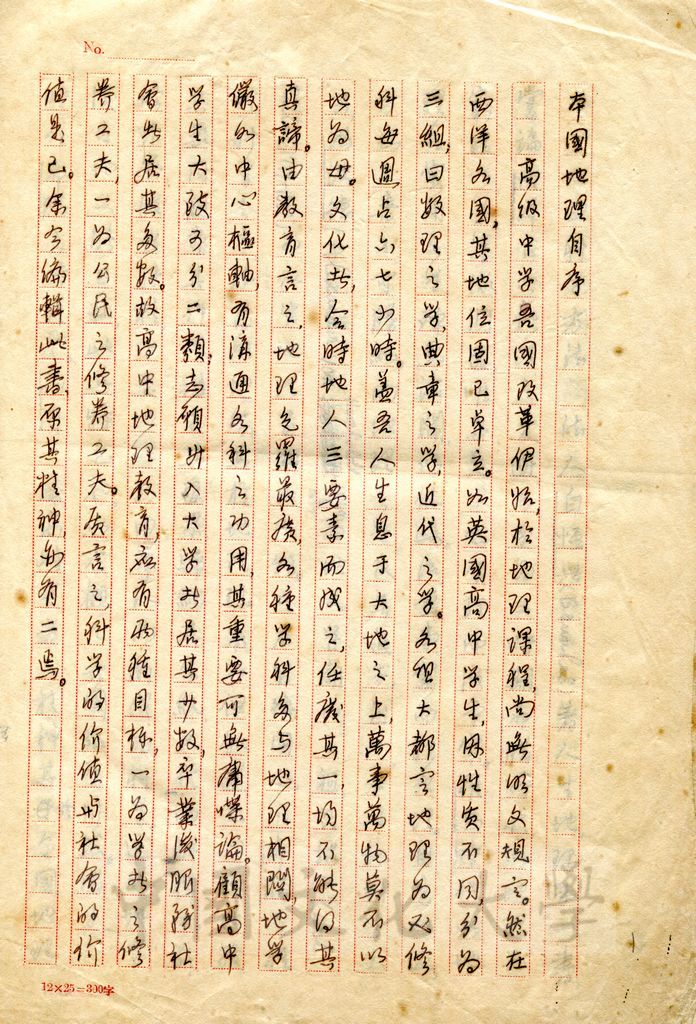 No.
本國地理自序
高級中学吾國改革伊始，於地理課程，尚無明文規定。然在
西洋各國，其地位固已卓立。如英國高中学生，因性质不同，分为
三組，曰数理之学，典章之学，近代之学。各組大都定地理为必修
科每週占六七小時。蓋吾人生息于大地之上，萬事萬物莫不以
地为母。文化者，合時地人三要素而成之，任廢其一，均不能得其
真諦。由教育言之，地理包羅最廣，各種学科多与地理相関，地学
儼如中心樞軸，有溝通各科之功用，其重要可無庸喋論。顧高中
学生大致可分二類，志願升入大学者居其少数，卒業後服務社
會者居其多数。故高中地理教育，应有兩種目标，一为学者之修
养工夫，一为公民之修养工夫。质言之，科学的价值与社會的价
值是已。余今编輯此書，原其精神，亦有二焉。
中國文化大學
12×25=300字